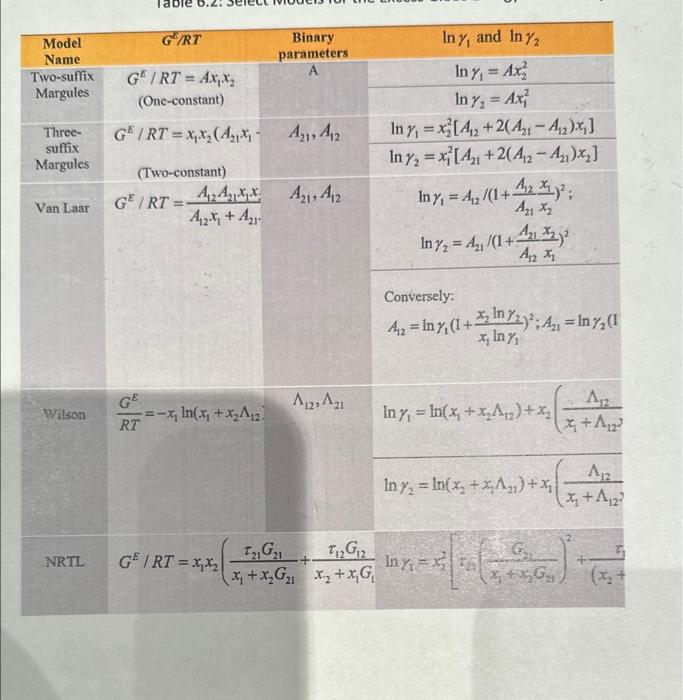 Table 6.2: Select Models for the Excess
Model Name | G^E/RT | Binary parameters | ln γ₁ and ln γ₂
Two-suffix Margules | G^E / RT = Ax₁x₂ (One-constant) | A | ln γ₁ = Ax₂²
ln γ₂ = Ax₁²
Three-suffix Margules | G^E / RT = x₁x₂(A₂₁x₁ (Two-constant) | A₂₁, A₁₂ | ln γ₁ = x₂²[A₁₂ + 2(A₂₁ − A₁₂)x₁]
ln γ₂ = x₁²[A₂₁ + 2(A₁₂ − A₂₁)x₂]
Van Laar | G^E / RT = A₁₂A₂₁x₁x₂ / A₁₂x₁ + A₂₁ | A₂₁, A₁₂ | ln γ₁ = A₁₂ /(1 + A₁₂ x₁ / A₂₁ x₂)²;
ln γ₂ = A₂₁ /(1 + A₂₁ x₂ / A₁₂ x₁)²
Conversely:
A₁₂ = ln γ₁(1 + x₂ ln γ₂ / x₁ ln γ₁)²; A₂₁ = ln γ₂(1
Wilson | G^E / RT = −x₁ ln(x₁ + x₂Λ₁₂) | Λ₁₂, Λ₂₁ | ln γ₁ = ln(x₁ + x₂Λ₁₂) + x₂( Λ₁₂ / x₁ + Λ₁₂
ln γ₂ = ln(x₂ + x₁Λ₂₁) + x₁( Λ₁₂ / x₁ + Λ₁₂
NRTL | G^E / RT = x₁x₂( τ₂₁G₂₁ / x₁ + x₂G₂₁ + τ₁₂G₁₂ / x₂ + x₁G | ln γ₁ = x₂²[ τ₂₁( G₂₁ / x₁ + x₂G₂₁ )² + τ / (x₂ +